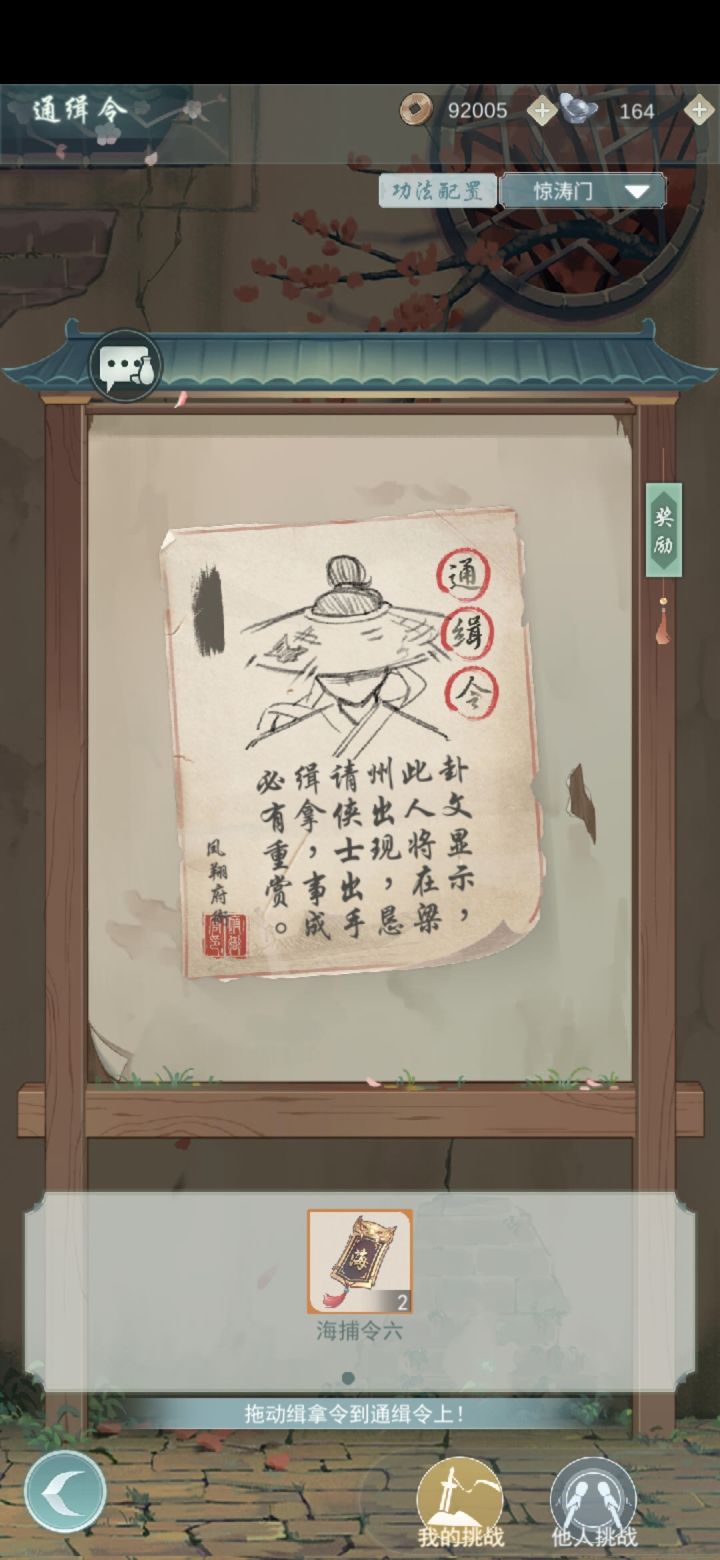 通缉令
92005
164
功法配置
惊涛门
奖励
通缉令
卦文显示，
此人将在梁
州出现，恳
请侠士出手
缉拿，事成
必有重赏。
凤翔府衙
海
2
海捕令六
拖动缉拿令到通缉令上！
我的挑战
他人挑战